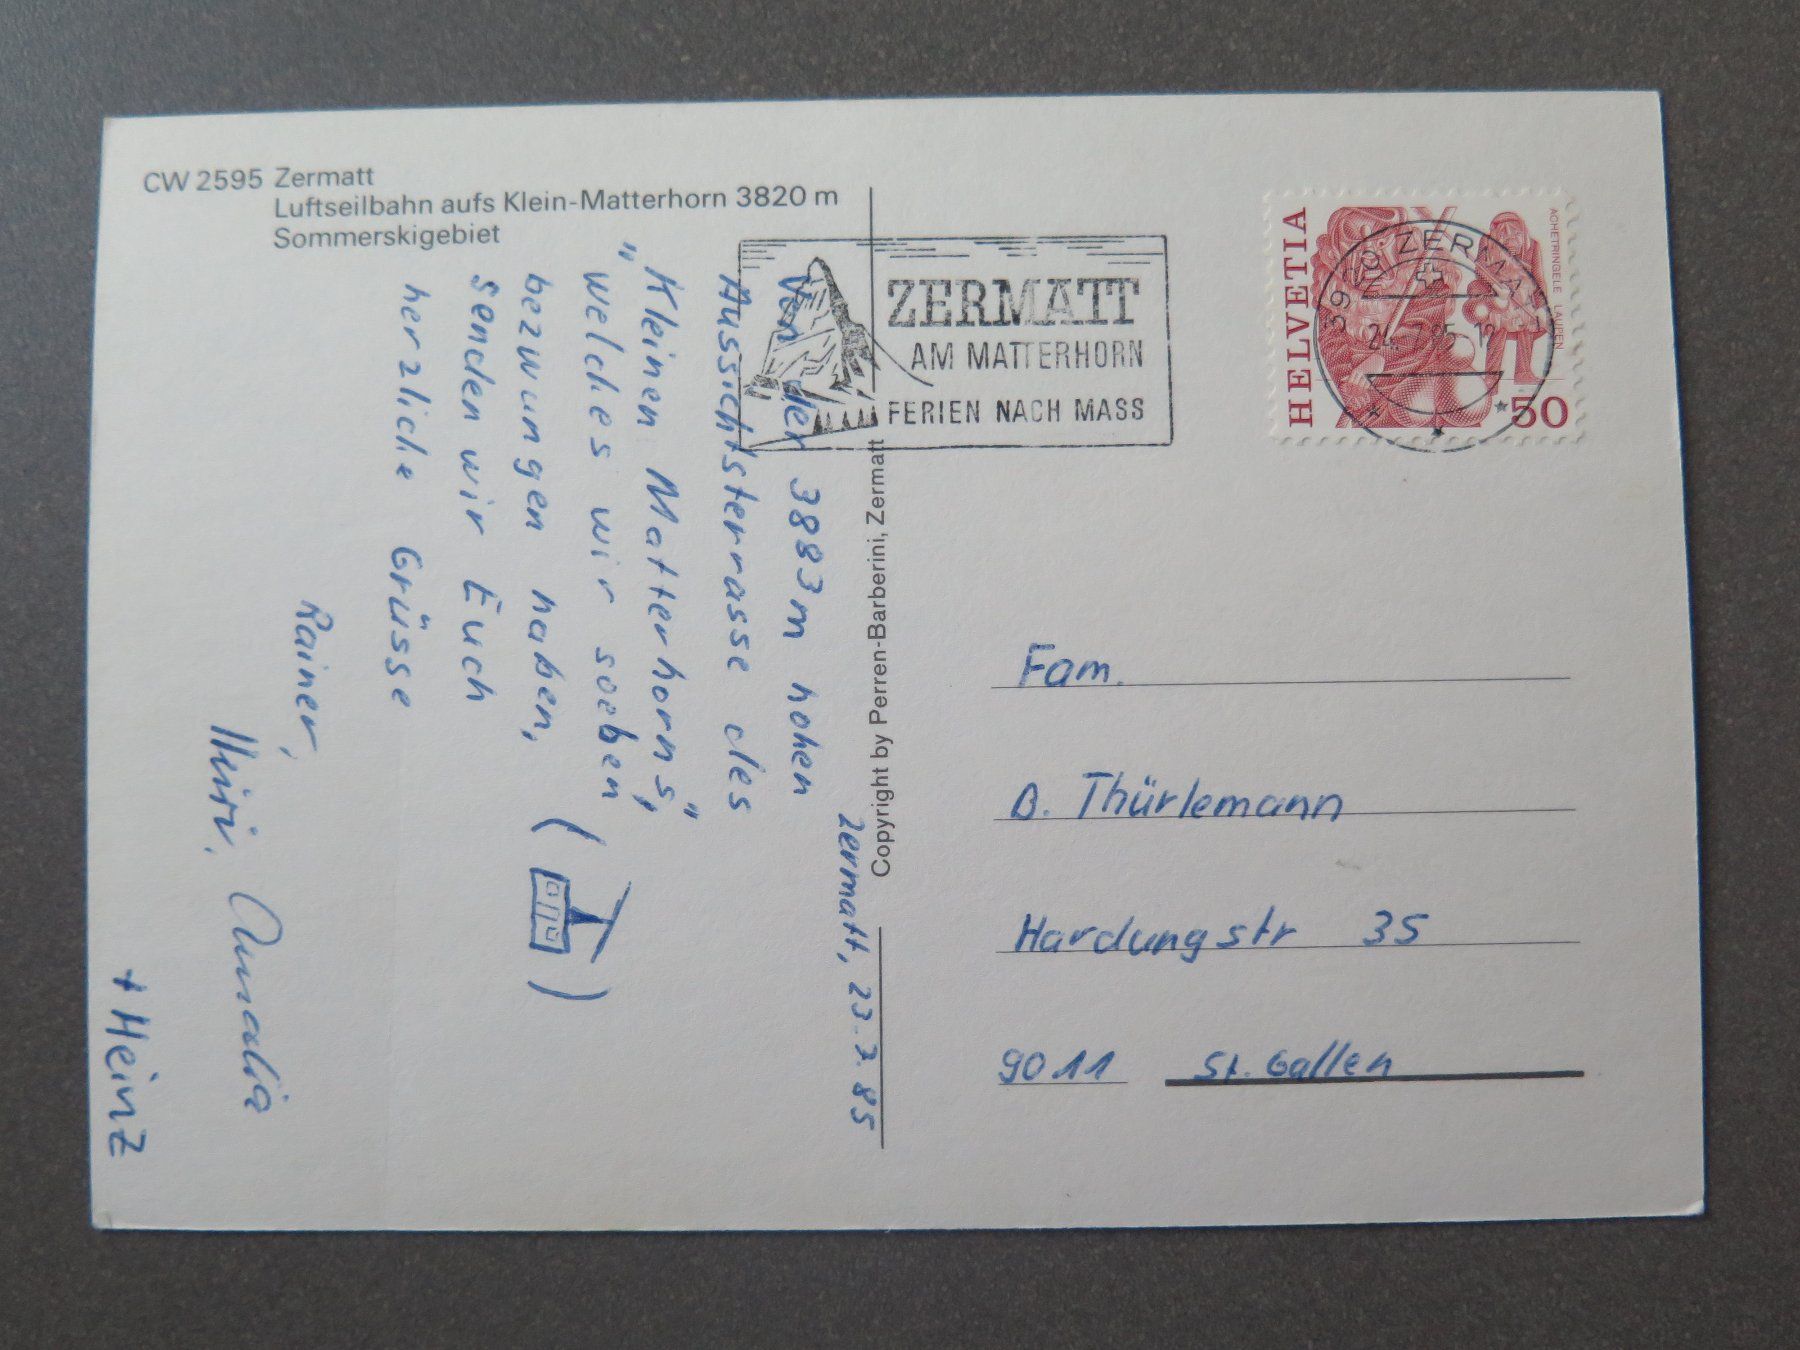 CW 2595 Zermatt
Luftseilbahn aufs Klein-Matterhorn 3820 m
Sommerskigebiet
Zermatt, 23.7.85
Von der 3883m hohen
Aussichtsterrasse des
"Kleinen Matterhorns",
welches wir soeben
bezwungen haben, ( )
senden wir Euch
herzliche Grüsse
Rainer,
Amalia
+ Heinz
Copyright by Perren-Barberini, Zermatt
ZERMATT
AM MATTERHORN
FERIEN NACH MASS
HELVETIA
ACHETRINGELE LAUPEN
50
3920 ZERMATT
24.-7.85-12
Fam.
B. Thürlemann
Hardungstr 35
9011 St. Gallen